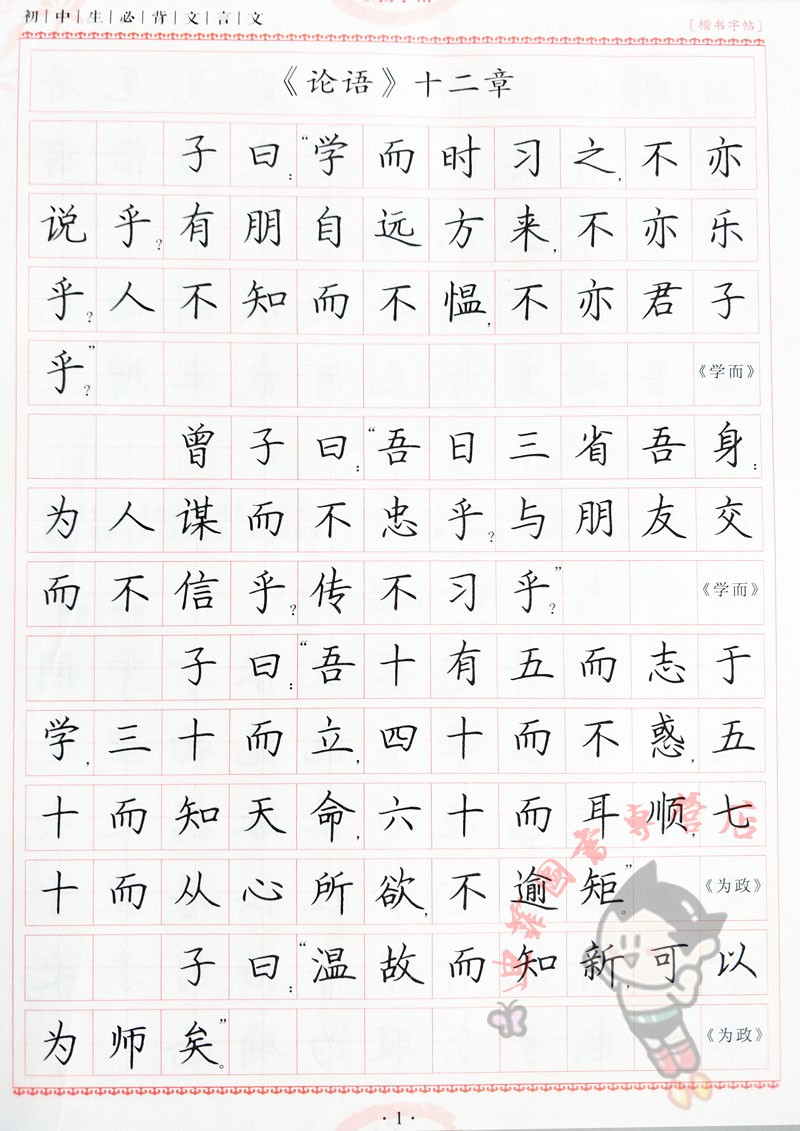 初|中|生|必|背|文|言|文
[楷书字帖]
《论语》十二章
子曰：“学而时习之，不亦
说乎？有朋自远方来，不亦乐
乎？人不知而不愠，不亦君子
乎？” 《学而》
曾子曰：“吾日三省吾身：
为人谋而不忠乎？与朋友交
而不信乎？传不习乎？” 《学而》
子曰：“吾十有五而志于
学，三十而立，四十而不惑，五
十而知天命，六十而耳顺，七
十而从心所欲，不逾矩。” 《为政》
子曰：“温故而知新，可以
为师矣。” 《为政》
·1·